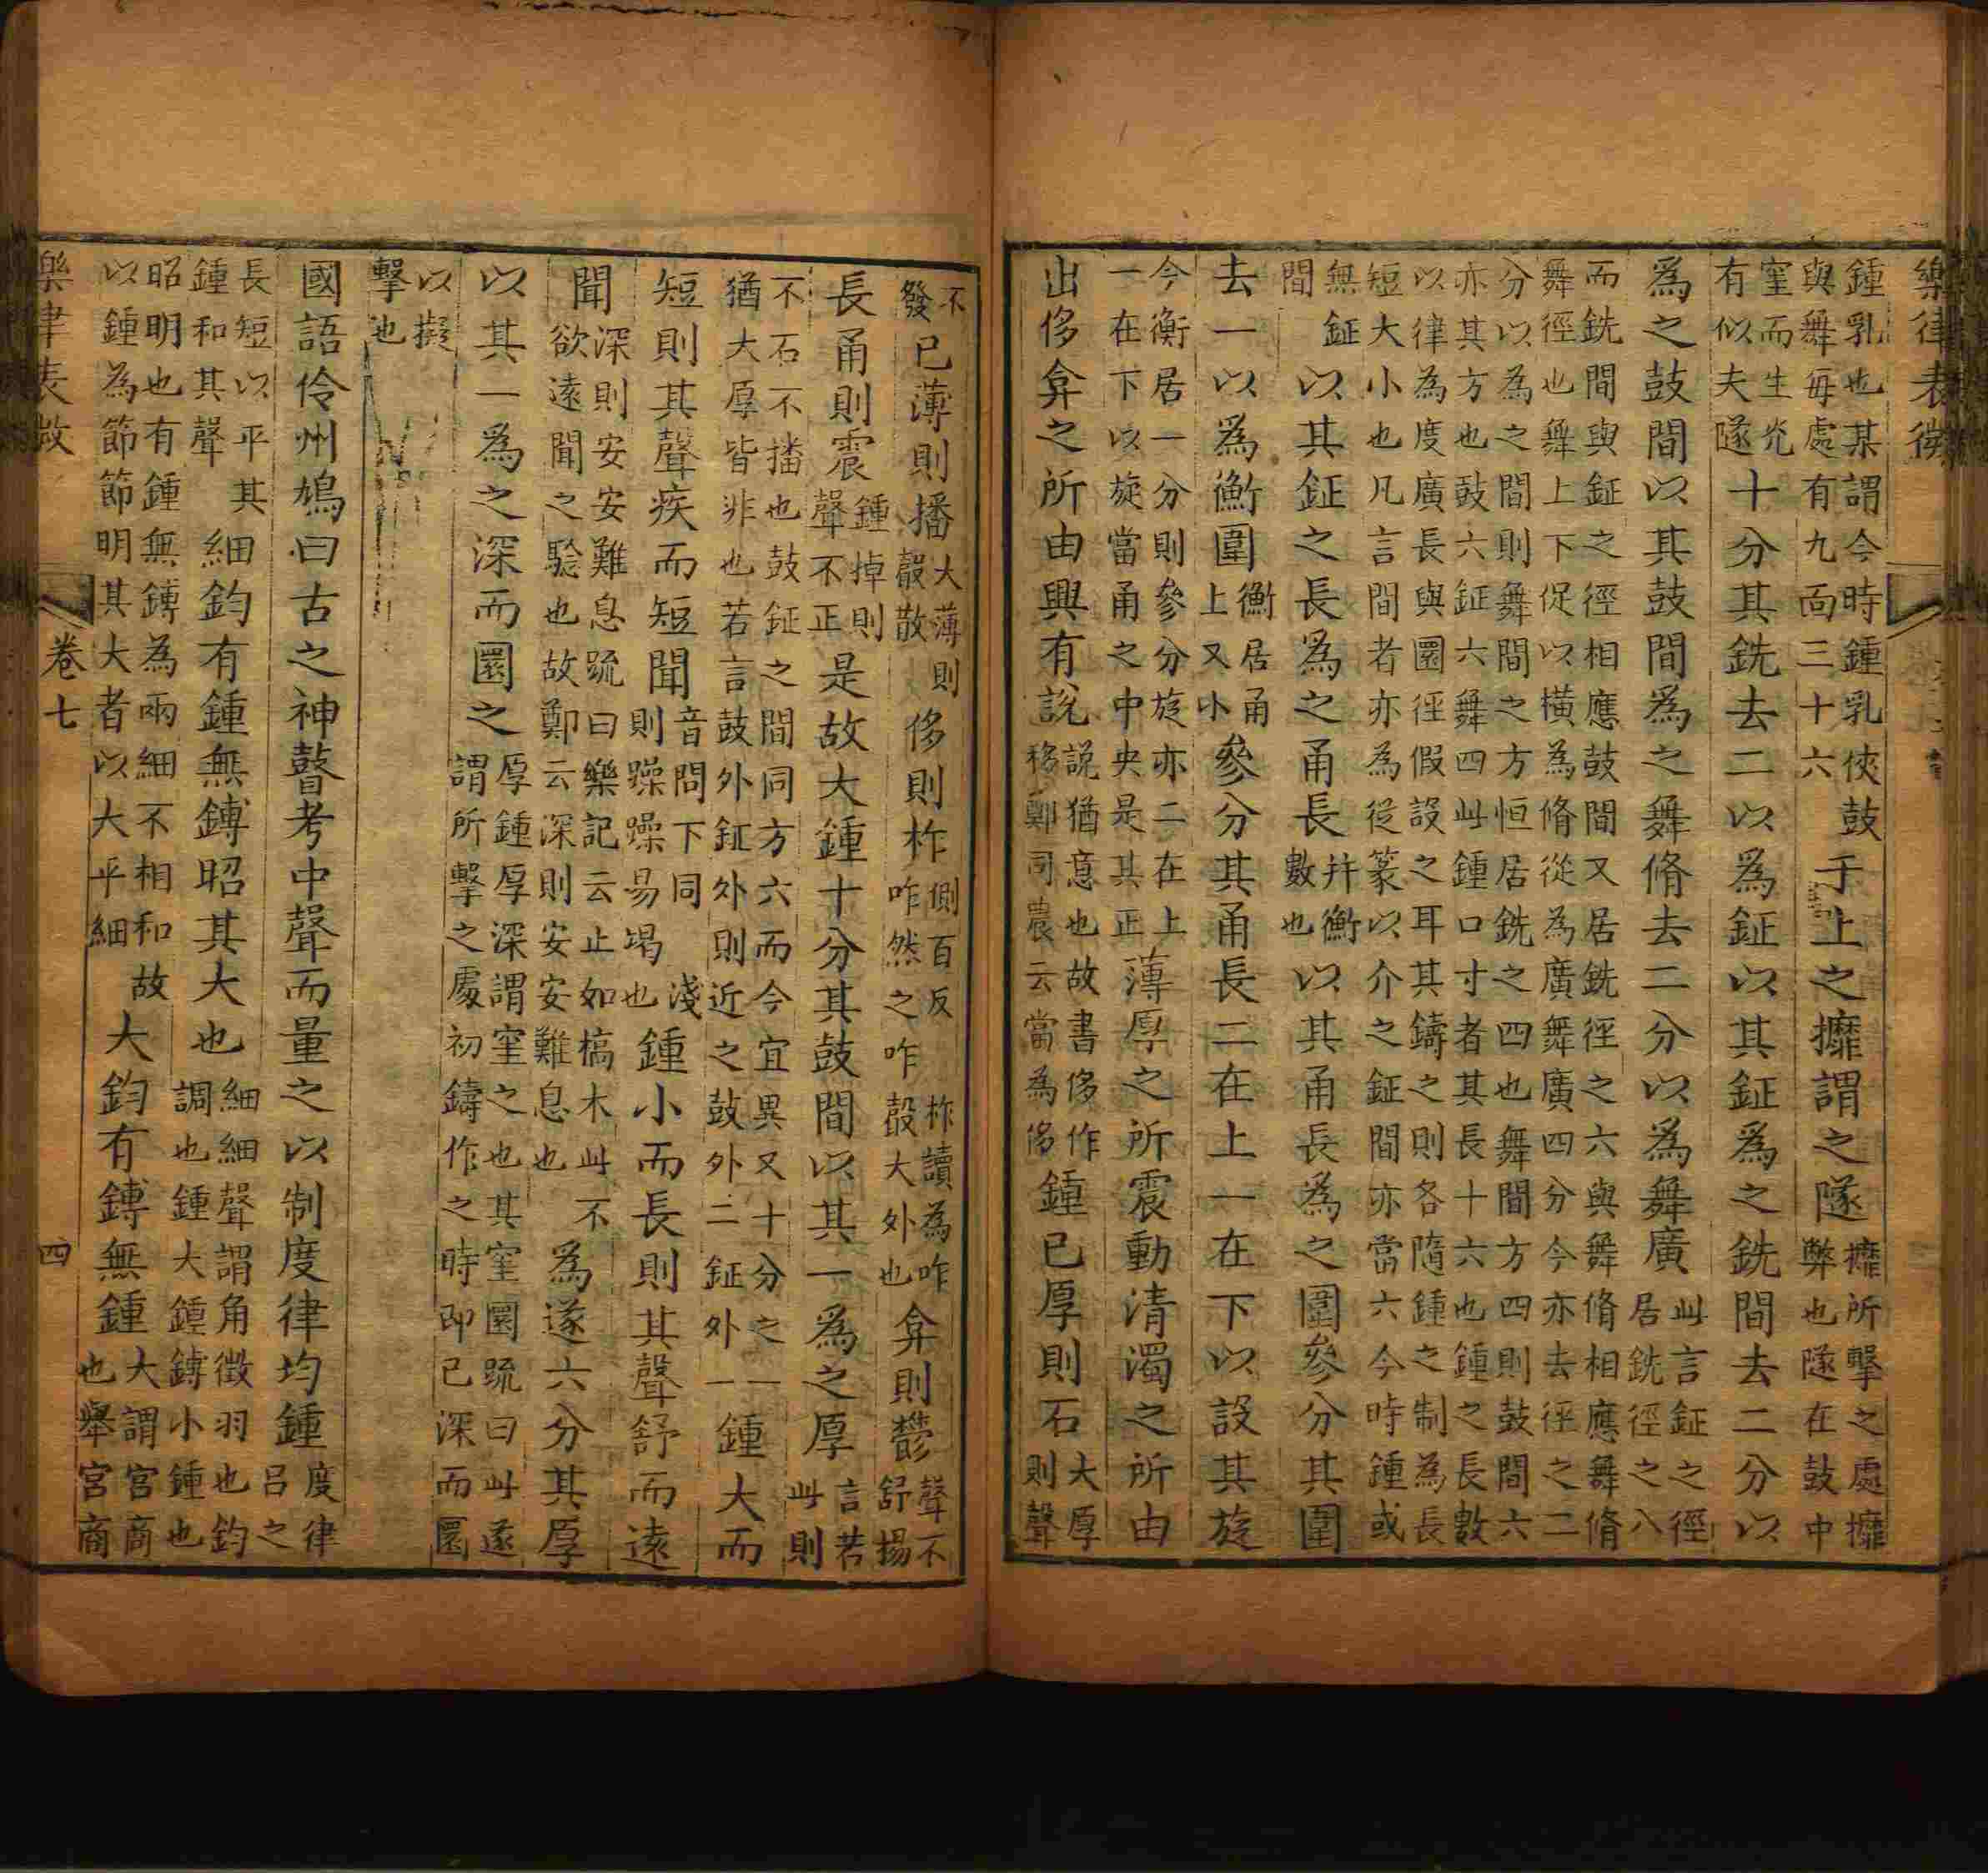 樂律表微
鍾乳也某謂今時鍾乳俠鼓
與舞每處有九面三十六
于上之攠謂之隧
攠所擊之處攠
弊也隧在鼓中
窐而生光
有似夫隧
十分其銑去二以爲鉦以其鉦爲之銑間去二分以
爲之鼓間以其鼓間爲之舞脩去二分以爲舞廣
此言鉦之徑
居銑徑之八
而銑間與鉦之徑相應鼓間又居銑徑之六與舞脩相應舞脩
舞徑也舞上下促以橫為脩從為廣舞廣四分今亦去徑之二
分以為之間則舞間之方恒居銑之四也舞間方四則鼓間六
亦其方也鼓六鉦六舞四此鍾口寸者其長十六也鍾之長數
以律為度廣長與圜徑假設之耳其鑄之則各隨鍾之制為長
短大小也凡言間者亦為從篆以介之鉦間亦當六今時鍾或
無鉦
間
以其鉦之長爲之甬長
并衡
數也
以其甬長爲之圍參分其圍
去一以爲衡圍
衡居甬
上又小
參分其甬長二在上一在下以設其旋
今衡居一分則參分旋亦二在上
一在下以旋當甬之中央是其正
薄厚之所震動清濁之所由
出侈弇之所由興有說
說猶意也故書侈作
移鄭司農云當為侈
鍾已厚則石
大厚
則聲
不
發
已薄則播
大薄則
聲散
侈則柞
側百反 柞讀為咋咋
咋然之咋聲大外也
弇則鬱
聲不
舒揚
長甬則震
鍾掉則
聲不正
是故大鍾十分其鼓間以其一爲之厚
言若
此則
不石不播也鼓鉦之間同方六而今宜異又十分之一
猶大厚皆非也若言鼓外鉦外則近之鼓外二鉦外一
鍾大而
短則其聲疾而短聞
音問下同 淺
則躁躁易竭也
鍾小而長則其聲舒而遠
聞
深則安安難息疏曰樂記云止如槁木此不
欲遠聞之驗也故鄭云深則安安難息也
爲遂六分其厚
以其一爲之深而圜之
厚鍾厚深謂窐之也其窐圜疏曰此遂
謂所擊之處初鑄作之時即已深而圜
以擬
擊也
國語伶州鳩曰古之神瞽考中聲而量之以制度律均鍾
度律
呂之
長短以平其
鍾和其聲
細鈞有鍾無鎛昭其大也
細細聲謂角徵羽也鈞
調也鍾大鍾鎛小鍾也
昭明也有鍾無鎛為兩細不相和故
以鍾為節節明其大者以大平細
大鈞有鎛無鍾
大謂宮商
也舉宮商
樂律表微 卷七 四